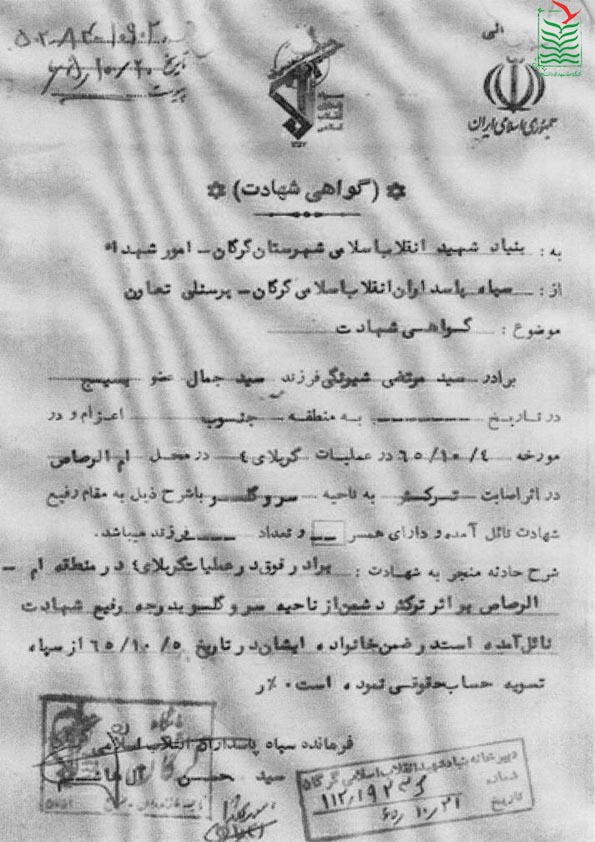 جمهوری اسلامی ایران
سپاه پاسداران انقلاب اسلامی
تاریخ ۶۵/۱۰/۲۰
پیوست
(گواهی شهادت)
به : بنیاد شهید انقلاب اسلامی شهرستان گرگان - امور شهداء
از : سپاه پاسداران انقلاب اسلامی گرگان - پرسنلی تعاون
موضوع : گواهی شهادت
برادر سید مرتضی شیرنگی فرزند سید جمال عضو بسیج
در تاریخ به منطقه جنوب اعزام و در
مورخه ۶۵/۱۰/۴ در عملیات کربلای ۴ در محل ام الرصاص
در اثر اصابت ترکش به ناحیه سر و گلو با شرح ذیل به مقام رفیع
شهادت نائل آمده و دارای همسر و تعداد فرزند میباشد.
شرح حادثه منجر به شهادت : برادر فوق در عملیات کربلای ۴ در منطقه ام -
الرصاص بر اثر ترکش دشمن از ناحیه سر و گلو بدرجه رفیع شهادت
نائل آمده است در ضمن خانواده ایشان در تاریخ ۶۵/۱۰/۵ از سپاه
تسویه حساب حقوقی نموده است.
فرمانده سپاه پاسداران انقلاب اسلامی
سید حسن
دبیرخانه بنیاد شهید انقلاب اسلامی گرگان
شماره
تاریخ ۶۵/۱۰/۲۱